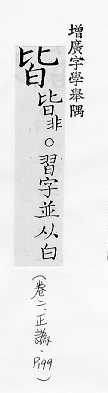 增廣字學舉隅
皆皆非○習字並从白
(卷二正譌 P.199)